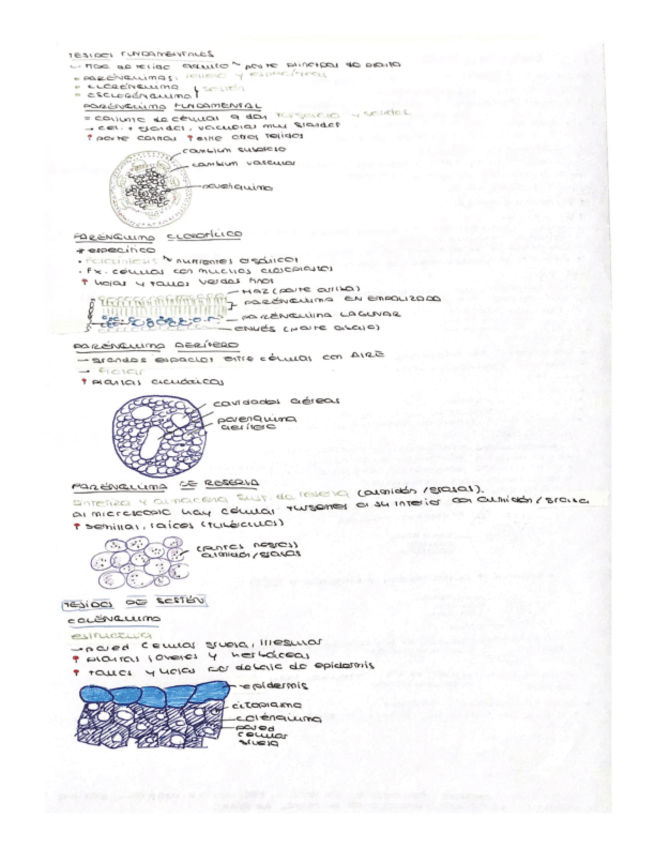 TEJIDOS FUNDAMENTALES
parte principal de planta
PARÉNQUIMAS: reserva y
COLÉNQUIMA
ESCLERÉNQUIMA } sostén
PARÉNQUIMA FUNDAMENTAL
= conjunto de células q dan turgencia y sostén
→ cel. + grandes, vacuolas muy grandes
↑ parte carnosa ↑ entre otros tejidos
cambium suberoso
cambium vascular
parénquima
PARÉNQUIMA CLOROFÍLICO
* específico
• fotosíntesis ↘ nutrientes orgánicos
• Fx. células con muchos cloroplastos
↑ hojas y tallos verdes finos
HAZ (parte arriba)
PARÉNQUIMA EN EMPALIZADA
PARÉNQUIMA LAGUNAR
ENVÉS (parte abajo)
PARÉNQUIMA AERÍFERO
→ grandes espacios entre células con AIRE
→ flotar
↑ plantas acuáticas
cavidades aéreas
parénquima
aerífero
PARÉNQUIMA DE RESERVA
sintetiza y almacena sust. de reserva (almidón/grasas).
al microscopio hay células turgentes a su interior con almidón/grasa
↑ semillas, raíces (tubérculos)
(puntos negros)
almidón/grasas
TEJIDOS DE SOSTÉN
COLÉNQUIMA
estructura
→ pared celular gruesa, irregular
↑ plantas jóvenes y herbáceas
↑ tallos y hojas por debajo de epidermis
epidermis
citoplasma
colénquima
pared
celular
gruesa